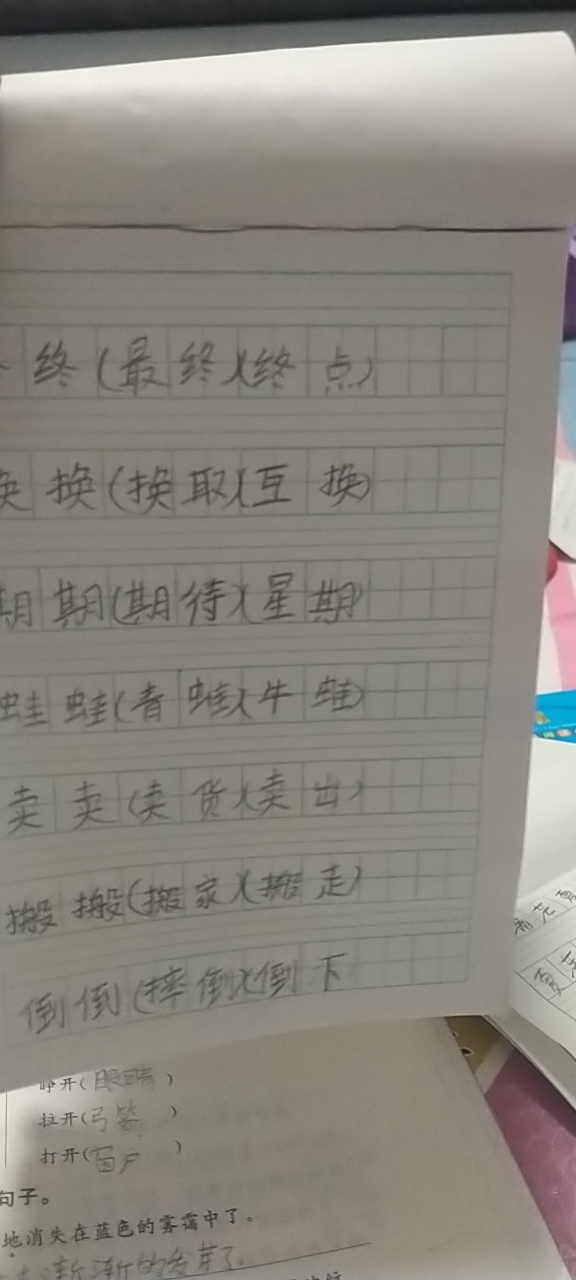 终(最终)(终点)
换换(换取)(互换)
期期(期待)(星期)
蛙蛙(青蛙)(牛蛙)
卖卖(卖货)(卖出)
搬搬(搬家)(搬走)
倒倒(摔倒)(倒下
睁开(眼睛)
拉开(弓箭)
打开(窗户)
句子。
地消失在蓝色的雾霭中了。
渐渐的发芽了。